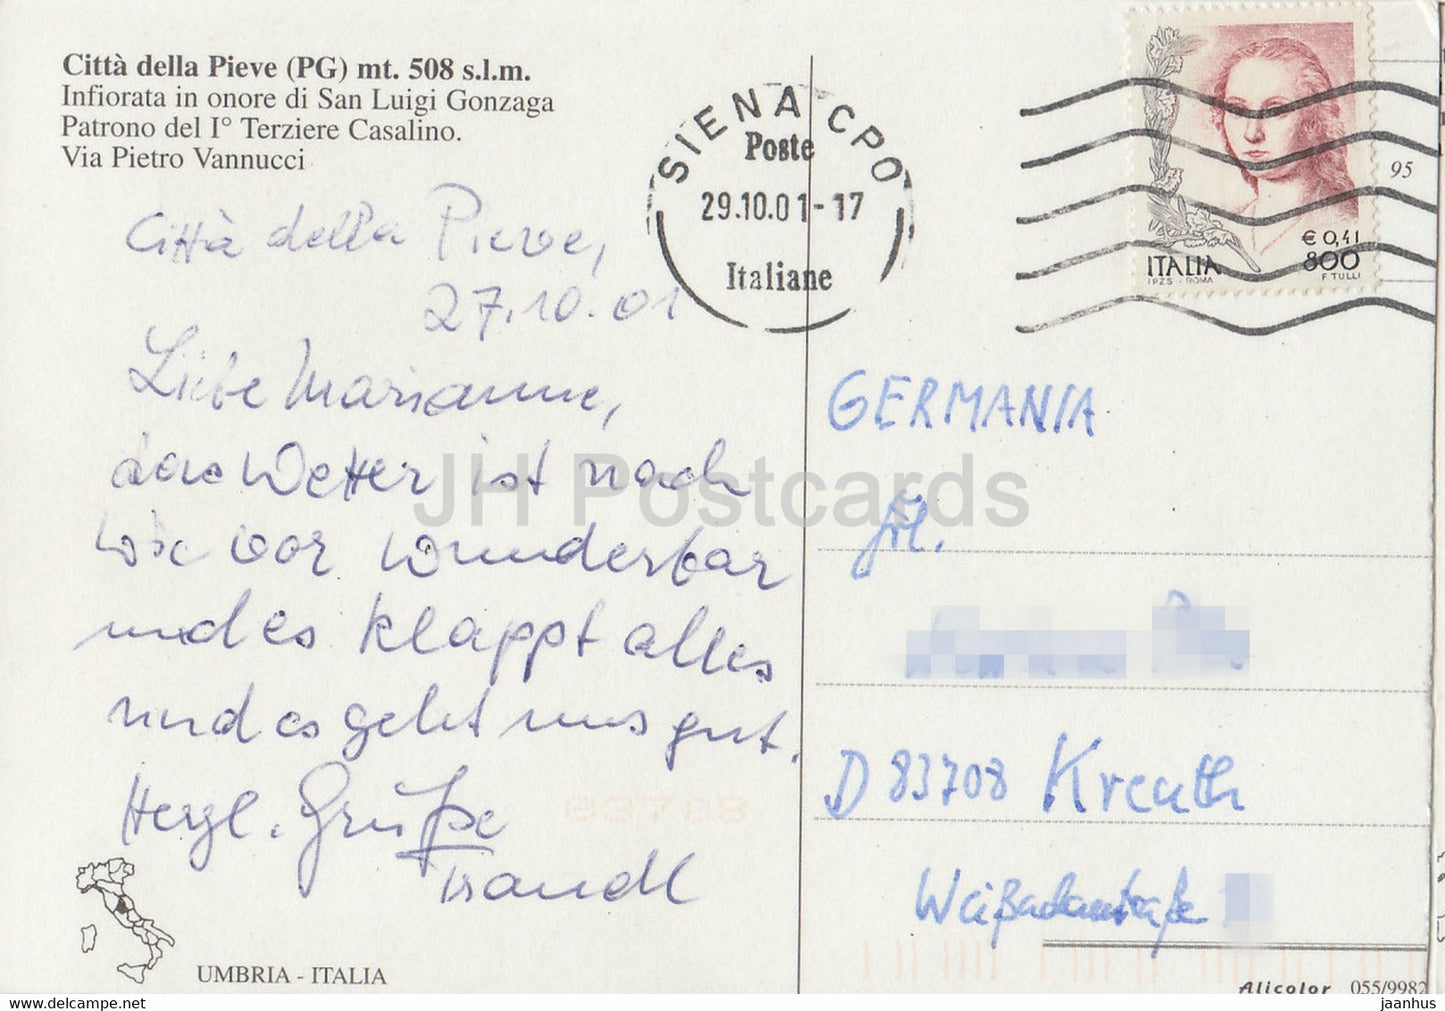 Città della Pieve (PG) mt. 508 s.l.m.
Infiorata in onore di San Luigi Gonzaga
Patrono del I° Terziere Casalino.
Via Pietro Vannucci
SIENA CPO
Poste
29.10.01-17
Italiane
95
€ 0,41
800
ITALIA
F. TULLI
I.P.Z.S. - ROMA
Città della Pieve,
27.10.01
Liebe Marianne,
das Wetter ist nach
wie vor wunderbar
und es klappt alles
und es geht uns gut.
Herzl. Grüße
GERMANIA
Frl.
D 83708 Kreuth
83708
UMBRIA - ITALIA
Alicolor 055/9982
JH Postcards
jaanhus